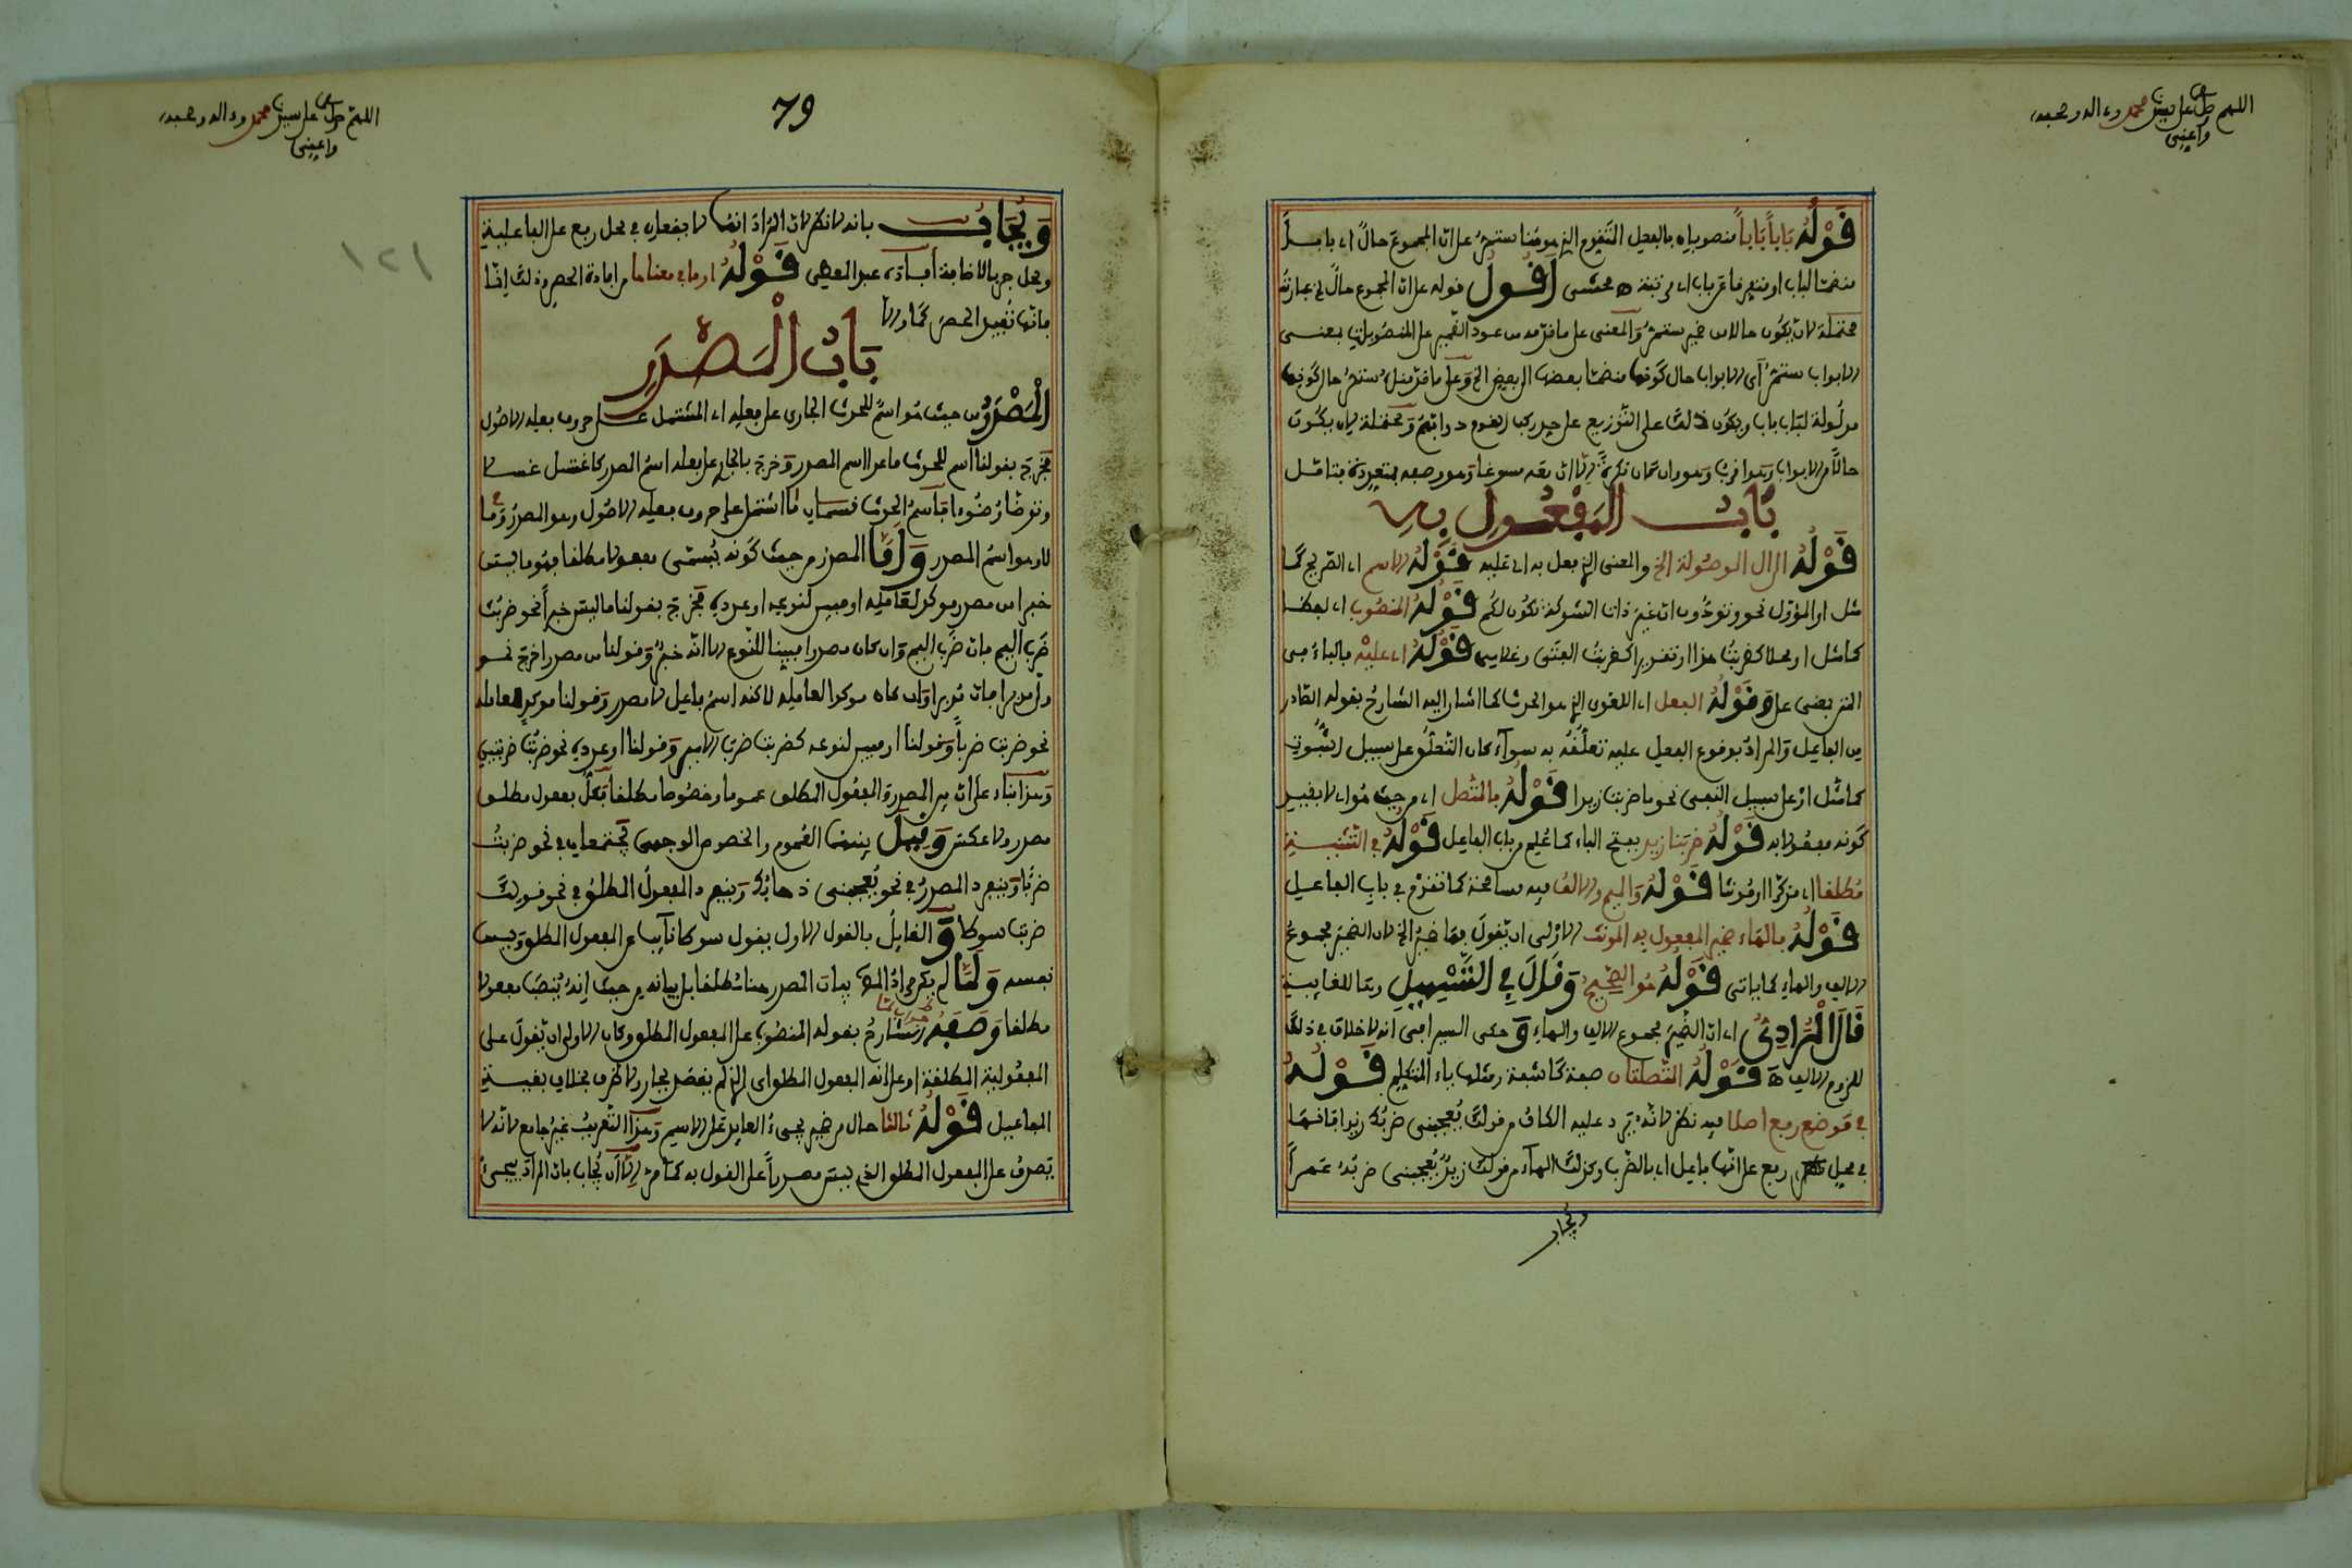 اللهم صل على سيدنا محمد وءاله وصحبه
واعنى
قَوْلُهُ بَاباً بَاباً منصوبان بالفعل المتقدم الذى هو هنا ستمر على ان المجموع حال اى بابا
منضما لباب او متميزا عن باب اى مرتبة ه محشى أقول قوله على ان المجموع حال فى عبارته
محتملة لان يكون حالا من ضمير ستمر والمعنى على ما قدمه من عود الضمير على المنصوبات بمعنى
الابواب ستمر اى الابواب حال كونها منضما بعضها الى بعض الخ وعلى ما قدمنا ستمر حال كونها
مدلولة لباب باب ويكون ذلك على التوزيع على حد ركب القوم دوابهم ومحتملة لان يكون
حالا من الابواب وهو اقرب وهو وان كان نكرة الا ان معه مسوغا وهو وصفه بمتعددة فتأمل
بَابُ المَفْعُولِ بِهِ
قَوْلُهُ ال الموصولة الخ والمعنى الذى فعل به اى عليه قَوْلُهُ الاسم اى الصريح كما
مثل او المؤول نحو وتودون ان غير ذات الشوكة تكون لكم قَوْلُهُ المنصوب اى لفظا
كما مثل او محلا كضربت هذا او تقديرا كضربت الفتى وغلامى قَوْلُهُ اى عليه فالباء بمعنى
على قَوْلُهُ الفعل اى اللغوى الذى هو الحدث كما اشار اليه الشارح بقوله الصادر
من الفاعل والمراد بوقوع الفعل عليه تعلقه به سواء كان التعلق على سبيل الثبوت
كما مثل او على سبيل النفى نحو ما ضربت زيدا قَوْلُهُ فالمتصل اى من حيث هو اى لا بقيد
كونه مفعولا به قَوْلُهُ ضربنا زيد بفتح الباء كما علم من باب الفاعل قَوْلُهُ فى التثنية
مطلقا اى مذكرا او مؤنثا قَوْلُهُ والميم والالف فيه مسامحة كما تقدم فى باب الفاعل
قَوْلُهُ فالهاء ضمير المفعول به المونث الاولى ان يقول فها ضمير الخ لان الضمير مجموع
الالف والهاء كما ياتى قَوْلُهُ هو الصحيح وَقَالَ فِى التَّسْهِيلِ وها للغايبة
قَالَ الْمُرَادِىُّ اى ان الضمير مجموع الالف والهاء وحكى السيرافى انه لا خلاف فى ذلك
للزوم الالف ه قَوْلُهُ المتصلتان صفة كاشفة ومثلها ياء المتكلم قَوْلُهُ
فى موضع رفع اصلا فيه نظر لانه يرد عليه الكاف من قولك يعجبنى ضربك زيدا فانها
فى محل رفع على انها فاعل اى بالضرب وكذلك الهاء من قولك زيد يعجبنى ضربه عمرا
ويجاب
اللهم صل على سيدنا محمد وءاله وصحبه
واعنى
79
١٢١
وَيُجَابُ بانه لا نظر لان المراد انها لا يقعان فى محل رفع على الفاعلية
ومحل جر بالاضافة أفاده عبد المعطى قَوْلُهُ او ما فى معناها من افادة الحصر وذلك إنما
فانها تفيد الحصر كما والا
بَابُ الْمَصْدَرِ
الْمَصْدَرُ من حيث هو اسم للحدث الجارى على فعله اى المشتمل على حروف فعله الاصول
فخرج بقولنا اسم للحدث ما عدا اسم المصدر وخرج بالجار على فعله اسم المصدر كاغتسل غسلا
وتوضأ وضوءا فاسم الحدث قسمان ما اشتمل على حروف فعله الاصول وهو المصدر وما
لا وهو اسم المصدر وَأَمَّا المصدر من حيث كونه يسمى مفعولا مطلقا فهو ما ليس
خبرا من مصدر موكد لعامله او مبين لنوعه او عدده فخرج بقولنا ما ليس خبرا نحو ضربك
ضرب اليم فان ضرب اليم وان كان مصدرا مبينا للنوع الا انه خبر وقولنا من مصدر اخرج نحو
ولى مدبرا فان مدبرا وان كان موكدا لعامله لاكنه اسم فاعل لا مصدر وقولنا موكد لعامله
نحو ضربت ضربا وقولنا او مبين لنوعه كضربت ضرب الامير وقولنا او عدده نحو ضربت ضربتين
وهذا بناء على ان بين المصدر والمفعول المطلق عموما وخصوصا مطلقا فكل مفعول مطلق
مصدر ولا عكس وَقِيلَ بينهما العموم والخصوص الوجهى فيجتمعان فى نحو ضربت
ضربا وينفرد المصدر فى نحو يعجبنى ذهابك وينفرد المفعول المطلق فى نحو قولك
ضربت سوطا و القايل بالقول الاول يقول سوطا نايب عن المفعول المطلق وليس
نفسه وَلَمَّا لم يكن مراد المص بيان المصدر هنا مطلقا بل بيانه من حيث انه ينصب مفعولا
مطلقا وَصَفَهُ الشارح بقوله المنصوب على المفعول المطلق وكان الاولى ان يقول على
المفعولية المطلقة او على انه المفعول المطلق اى الذى لم يقيد بجار ولا ظرف بخلاف بقية
المفاعيل قَوْلُهُ ثالثا حال من ضمير يجىء العايد على الاسم وهذا التعريف غير جامع لانه لا
يصدق على المفعول المطلق الذى ليس مصدرا على القول به كما مر الا ان يجاب بان المراد يجىء